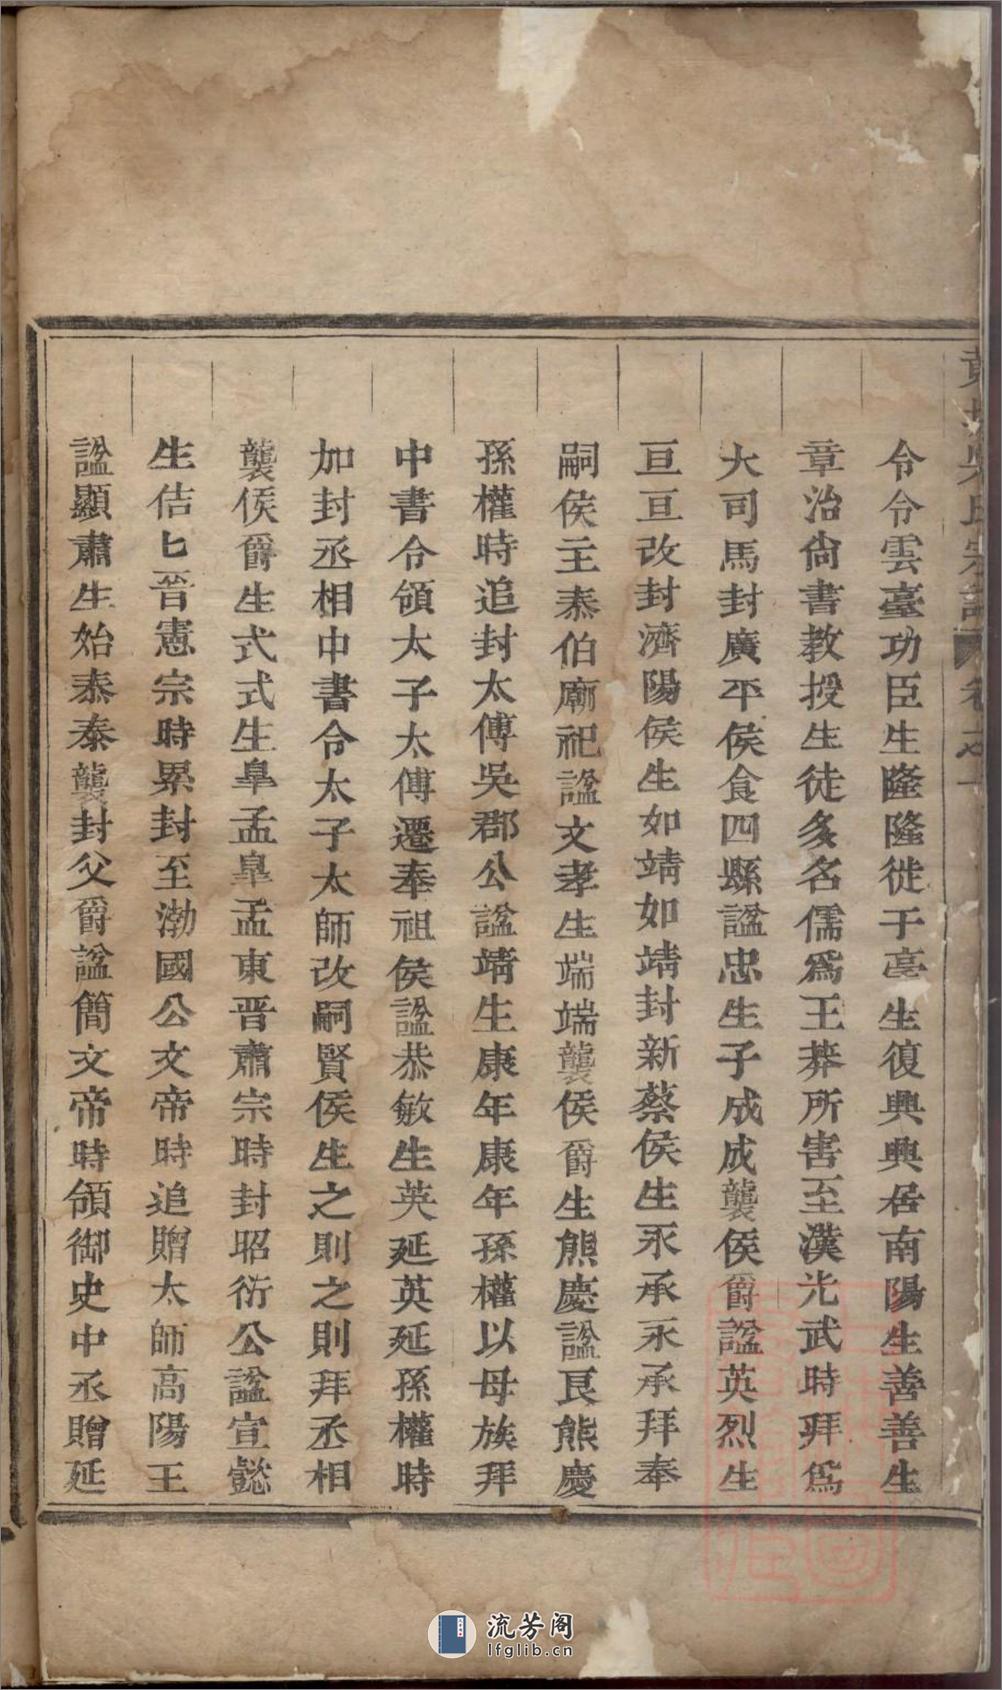 令令雲臺功臣生隆隆徙于亳生復興興居南陽生善善生
章治尙書教授生徒多名儒爲王莽所害至漢光武時拜爲
大司馬封廣平侯食四縣諡忠生子成成襲侯爵諡英烈生
亘亘改封濟陽侯生如靖如靖封新蔡侯生永承永承拜奉
嗣侯主泰伯廟祀諡文孝生端端襲侯爵生熊慶諡良熊慶
孫權時追封太傅吳郡公諡靖生康年康年孫權以母族拜
中書令領太子太傅遷奉祖侯諡恭敏生英延英延孫權時
加封丞相中書令太子太師改嗣賢侯生之則之則拜丞相
襲侯爵生式式生皐孟皐孟東晋肅宗時封昭衍公諡宣懿
生佶匕晉憲宗時累封至渤國公文帝時追贈太師高陽王
諡顯肅生始泰泰襲封父爵諡簡文帝時領御史中丞贈延
氏宗譜 卷之十
流芳阁
lfglib.cn